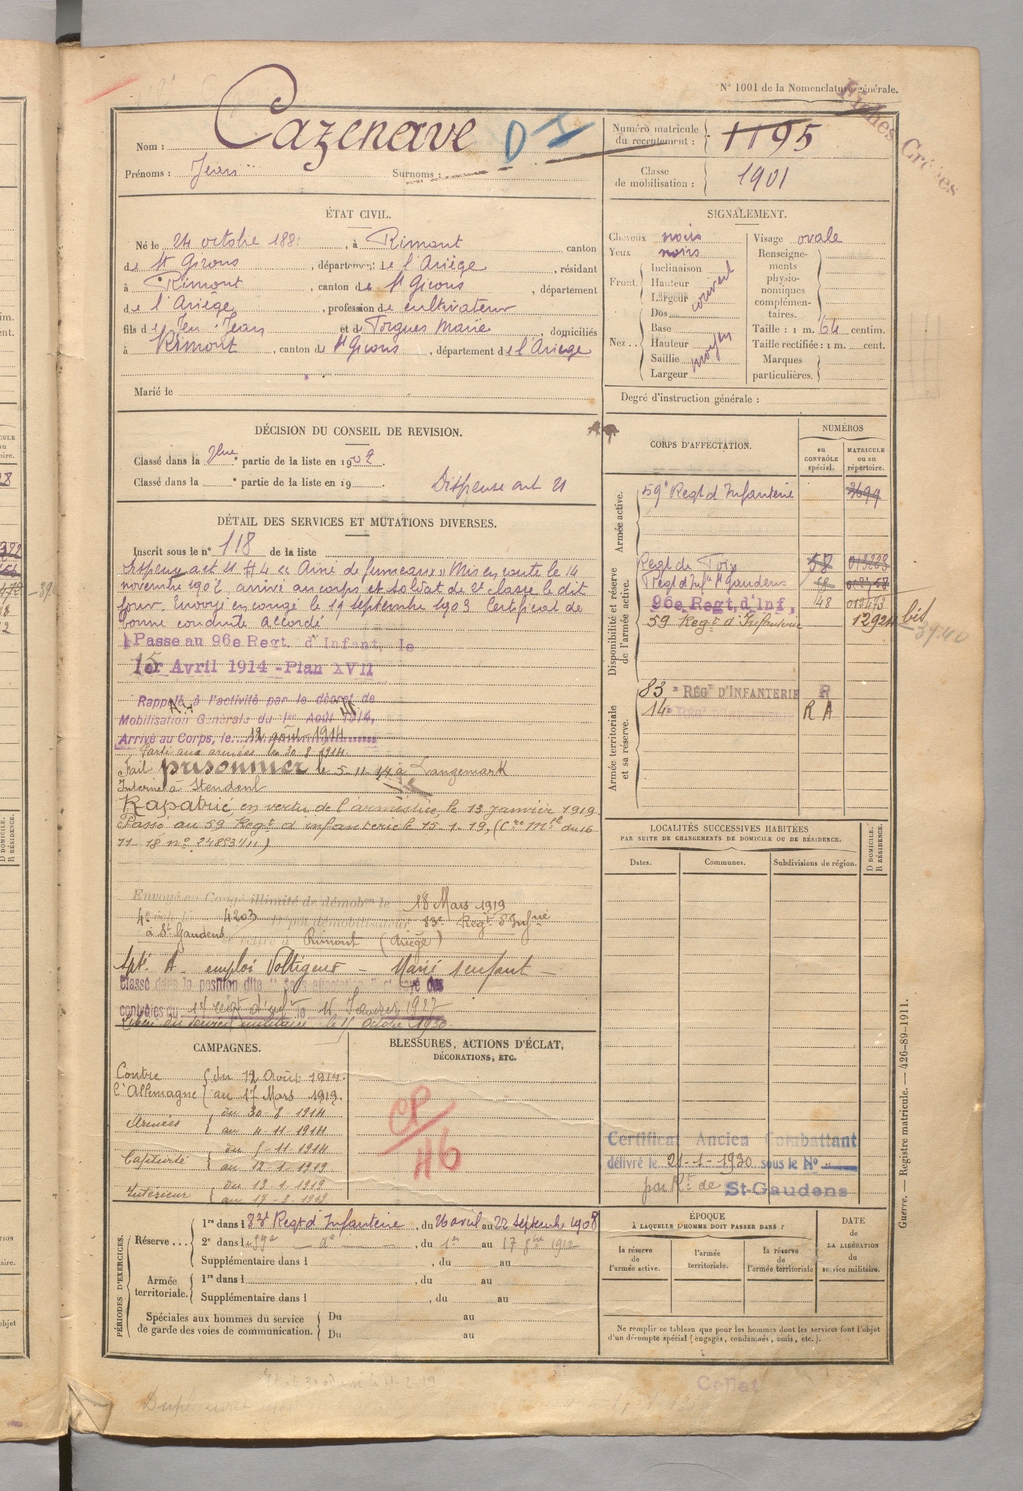 N° 1001 de la Nomenclature générale.
Fiches Créées
Nom : Cazenave
Prénoms : Jean Surnoms :
Numéro matricule du recrutement : 1195
Classe de mobilisation : 1901
ÉTAT CIVIL.
Né le 24 octobre 188 , à Rimont canton
de St Girons , département de l'Ariège , résidant
à Rimont , canton de St Girons , département
de l'Ariège , profession de cultivateur
fils de feu Jean et de Torgues Marie , domiciliés
à Rimont , canton de St Girons , département de l'Ariège
Marié le
SIGNALEMENT.
Cheveux noirs
Yeux noirs
Front Inclinaison
Hauteur
Largeur
couvert
Nez Dos
Base
Hauteur
Saillie
Largeur
moyen
Visage ovale
Renseignements physionomiques complémentaires.
Taille : 1 m. 64 centim.
Taille rectifiée : 1 m. cent.
Marques particulières.
Degré d'instruction générale :
DÉCISION DU CONSEIL DE REVISION.
Classé dans la 2me partie de la liste en 1902.
Classé dans la ° partie de la liste en 19 .
Dispensé art 21
DÉTAIL DES SERVICES ET MUTATIONS DIVERSES.
Inscrit sous le n° 118 de la liste
Dispensé art 21 « Aîné de femeaux » Mis en route le 14
novembre 1902, arrivé au corps et soldat de 2e classe le dit
jour. Envoyé en congé le 19 septembre 1903 Certificat de
bonne conduite accordé
Passé au 96e Regt. d'Infant. le
15 Avril 1914 - Plan XVII
Rappelé à l'activité par le décret de
Mobilisation Générale du 1er Août 1914,
Arrivé au Corps, le 12 août 1914
Parti aux armées le 30.8.1914
Fait prisonnier le 5-11-14 à Langemark
Interné à Stendent
Rapatrié en vertu de l'armistice, le 13 janvier 1919
Passé au 59 Regt d'infanterie le 15.1.19, (Cre Mlle du 16
11-18 n° 24853 1/11)
Envoyé en Congé illimité de démobon le 18 Mars 1919
4e 4203 démobilisateur 83e Regt d'Infrie
à St Gaudens se retire à Rimont (Ariège)
Apt. A emploi Voltigeur - Marié 1 enfant -
Classé dans la position dite "Sans affectation" rayé des
contrôles du 14 regt d'inf le 15 Janvier 1927
Libéré du service militaire le 11 Octobre 1930
CORPS D'AFFECTATION.
NUMÉROS
au CONTRÔLE spécial.
MATRICULE ou au répertoire.
Armée active.
59e Regt d'Infanterie 2699
Disponibilité et réserve de l'armée active.
Regt de Foix 58
Regt d'Infie St Gaudens
96e Regt. d'Inf. 48
59 Regt d'Infanterie 12924 bis
39.40
Armée territoriale et sa réserve.
83e RÉGt D'INFANTERIE R
14e RÉGt D'INFANTERIE R A
LOCALITÉS SUCCESSIVES HABITÉES
PAR SUITE DE CHANGEMENTS DE DOMICILE OU DE RÉSIDENCE.
Dates. Communes. Subdivisions de région.
D DOMICILE.
R RÉSIDENCE.
Certificat Ancien Combattant
délivré le 21-1-1930 sous le N°
par Rt de St-Gaudens
CAMPAGNES.
Contre l'Allemagne du 12 Août 1914.
au 17 Mars 1919.
Armées du 30-8-1914
au 4-11-1914
Captivité du 5-11-1914
au 12-1-1919
Intérieur du 13-1-1919
au 17-3-1919
BLESSURES, ACTIONS D'ÉCLAT,
DÉCORATIONS, ETC.
CP/46
PÉRIODES D'EXERCICES.
Réserve... 1re dans l 83e Regt d'Infanterie , du 26 avril au 22 septembre 1908
2e dans le 59e do , du 1er au 17 9bre 1912
Supplémentaire dans l , du au
Armée territoriale. 1re dans l , du au
Supplémentaire dans l , du au
Spéciales aux hommes du service de garde des voies de communication. Du au
Du au
ÉPOQUE
À LAQUELLE L'HOMME DOIT PASSER DANS :
la réserve de l'armée active.
l'armée territoriale.
la réserve de l'armée territoriale
DATE DE LA LIBÉRATION du service militaire.
Ne remplir ce tableau que pour les hommes dont les services font l'objet
d'un décompte spécial (engagés, condamnés, omis, etc.).
Guerre. — Registre matricule. — 426-89-1911.